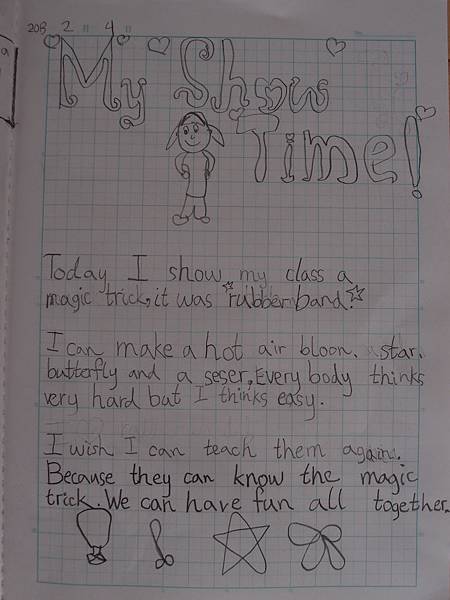 2013 2 4
My Show
Time!
Today I show my class a
magic trick, it was rubber band.
I can make a hot air bloon, a star,
butterfly and a seser, Every body thinks
very hard but I thinks easy.
I wish I can teach them again.
Because they can know the magic
trick. We can have fun all together.